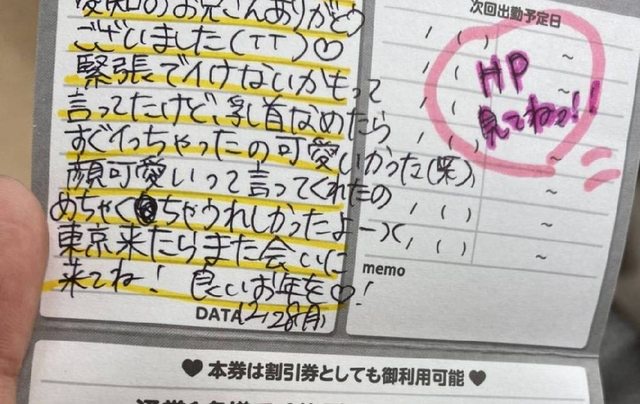 愛知のお兄さんありがとう
ございました(TT)♡
緊張でイけないかもって
言ってたけど、乳首なめたら
すぐイっちゃったの可愛いかった(笑)
顔可愛いって言ってくれたの
めちゃくちゃうれしかったよーつく
東京来たらまた会いに
来てね! 良いお年を♡!
DATA 12/28(月)
次回出勤予定日
/ ( ) ~
/ ( ) ~
/ ( ) ~
/ ( ) ~
/ ( ) ~
/ ( ) ~
/ ( ) ~
HP
見てねっ!!
memo
♥ 本券は割引券としても御利用可能 ♥